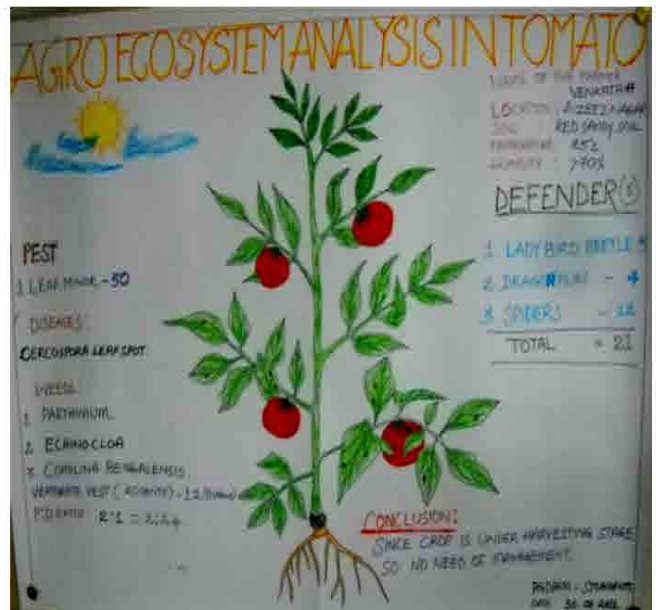 AGRO ECOSYSTEM ANALYSIS IN TOMATO
NAME OF THE FARMER
VENKATAH
LOCATION : AZEEZNAGAR
SOIL : RED SANDY SOIL
TEMPERATURE 25C
HUMIDITY : >70%
DEFENDER(S)
1. LADY BIRD BEETLE 5
2. DRAGONFLIES - 4
3. SPIDERS - 12
TOTAL = 21
PEST
1 LEAF MINOR - 50
DISEASES:
CERCOSPORA LEAF SPOT
WEEDS
1 PARTHINIUM
2 ECHINOCLOA
3 COMOLINA BENGALENSIS
VERTIBRATE PEST
P:D RATIO : 2:1
CONCLUSION:
SINCE CROP IS UNDER HARVESTING STAGE
SO NO NEED OF MANAGEMENT.